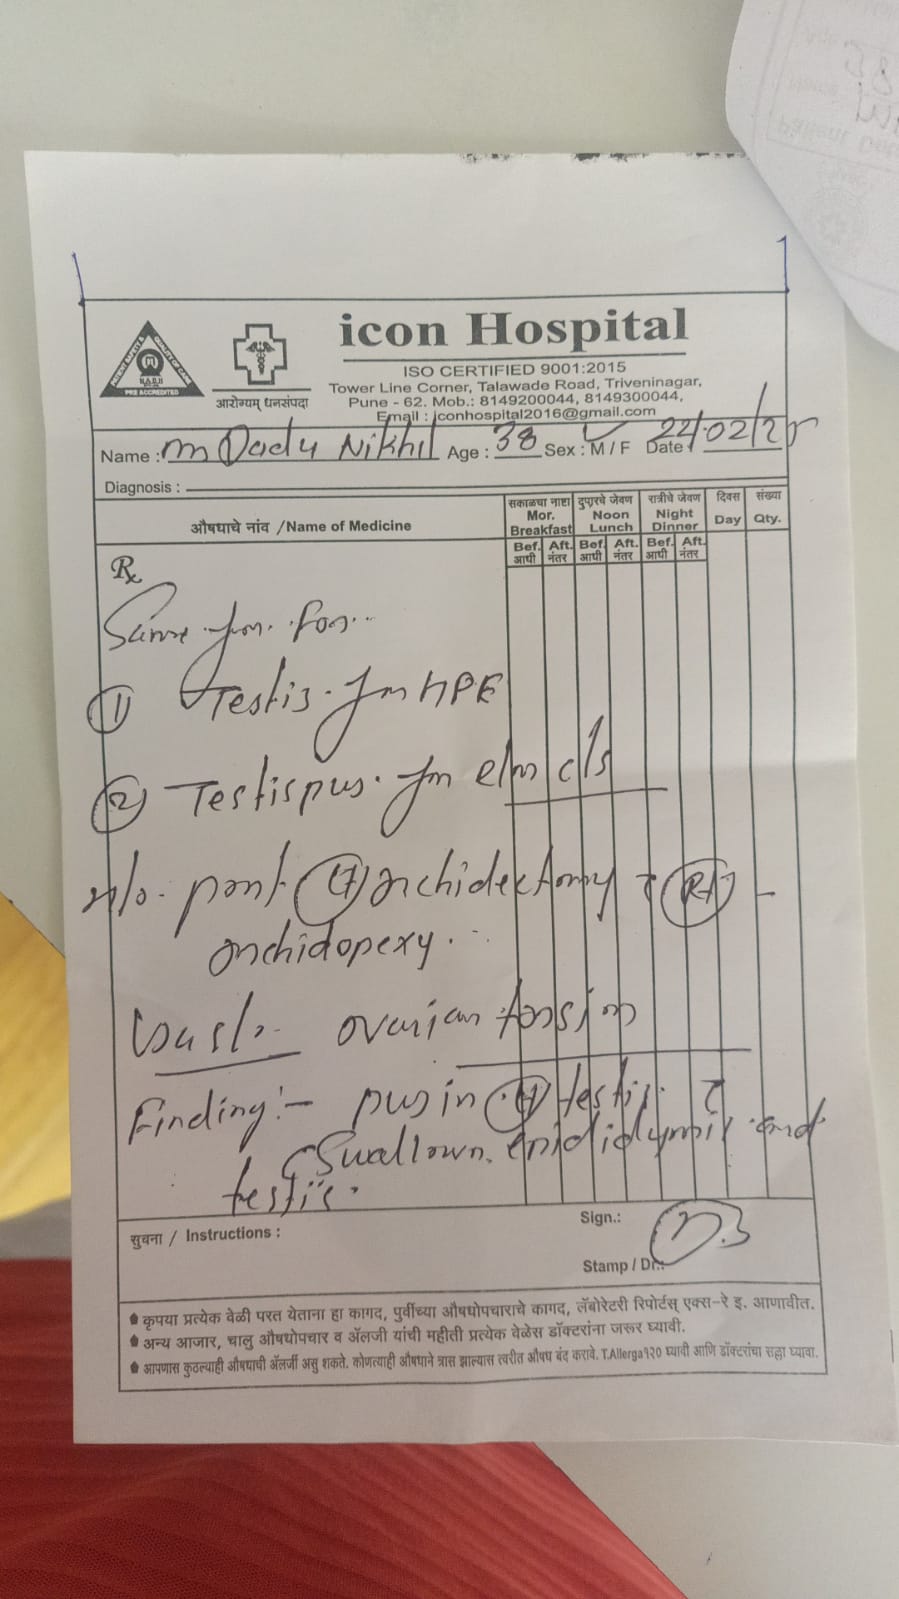 icon Hospital
ISO CERTIFIED 9001:2015
Tower Line Corner, Talawade Road, Triveninagar,
Pune - 62. Mob.: 8149200044, 8149300044,
Email : iconhospital2016@gmail.com
आरोग्यम् धनसंपदा
Name : Dadu Nikhil Age : 38 Sex : M / F Date : 22/02/25
Diagnosis :
औषधाचे नांव / Name of Medicine
सकाळचा नाष्टा Mor. Breakfast
दुपारचे जेवण Noon Lunch
रात्रीचे जेवण Night Dinner
दिवस Day
संख्या Qty.
Bef. आधी Aft. नंतर Bef. आधी Aft. नंतर Bef. आधी Aft. नंतर
Rx
① Testis HPE
② Testis pus c/s
orchidectomy Rt
orchidopexy.
ovarian torsion
Finding :- pus in testis
epididymis and
testis.
सुचना / Instructions :
Sign.:
Stamp / Dr.:
कृपया प्रत्येक वेळी परत येताना हा कागद, पुर्वीच्या औषधोपचाराचे कागद, लॅबोरेटरी रिपोर्टस् एक्स-रे इ. आणावीत.
अन्य आजार, चालु औषधोपचार व ॲलर्जी यांची महीती प्रत्येक वेळेस डॉक्टरांना जरूर घ्यावी.
आपणास कुठल्याही औषधाची ॲलर्जी असु शकते. कोणत्याही औषधाने त्रास झाल्यास त्वरीत औषध बंद करावे. T.Allerga १२० घ्यावी आणि डॉक्टरांचा सल्ला घ्यावा.